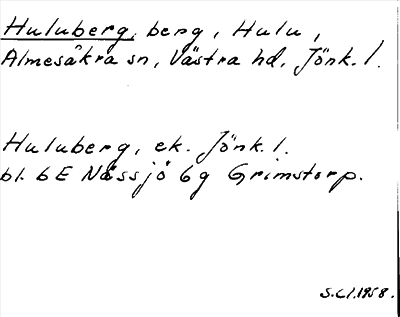 Huluberg, berg, Hulu,
Almesåkra sn, Västra hd, Jönk. l.
Huluberg, ek. Jönk. l.
bl. 6E Nässjö 6g Grimstorp.
S.Cl. 1958.